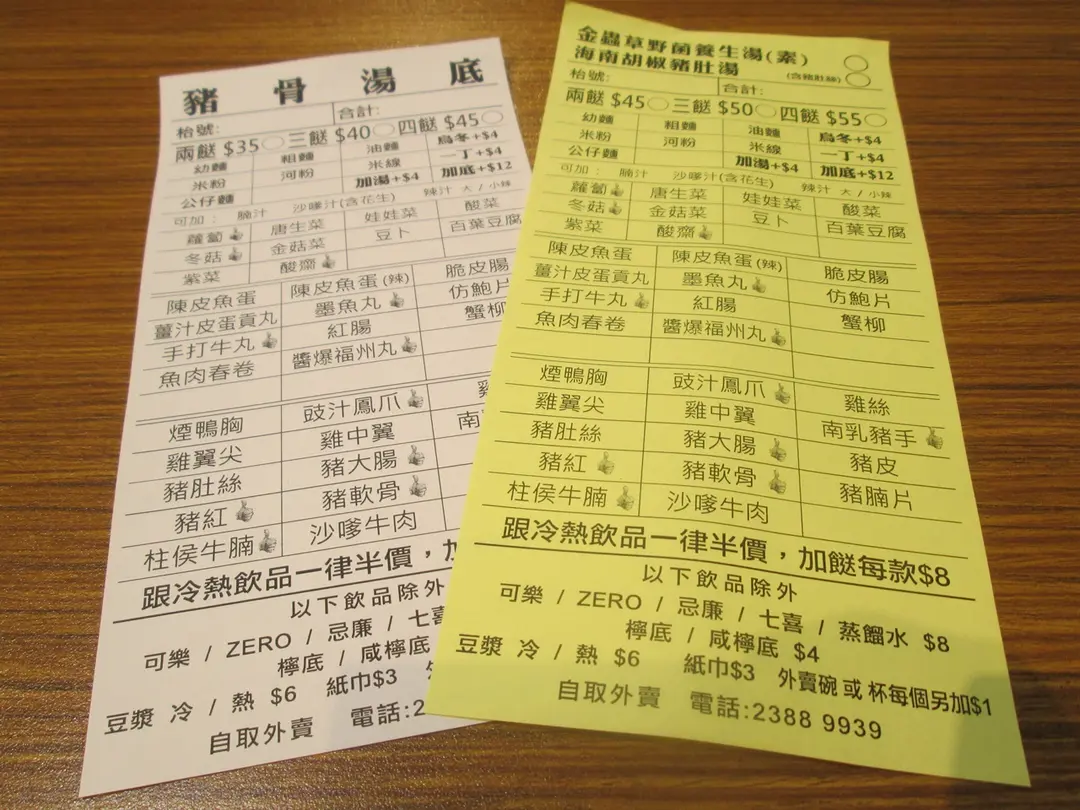 豬骨湯底
枱號: 合計:
兩餸 $35 三餸 $40 四餸 $45
幼麵 粗麵 油麵 烏冬+$4
米粉 河粉 米線 一丁+$4
公仔麵 加湯+$4 加底+$12
可加: 腩汁 沙嗲汁(含花生) 辣汁 大 / 小辣
蘿蔔 唐生菜 娃娃菜 酸菜
冬菇 金菇菜 豆卜 百葉豆腐
紫菜 酸齋
陳皮魚蛋 陳皮魚蛋(辣) 脆皮腸
薑汁皮蛋貢丸 墨魚丸 仿鮑片
手打牛丸 紅腸 蟹柳
魚肉春卷 醬爆福州丸
煙鴨胸 豉汁鳳爪
雞翼尖 雞中翼 南
豬肚絲 豬大腸
豬紅 豬軟骨
柱侯牛腩 沙嗲牛肉
跟冷熱飲品一律半價，加
以下飲品除外
可樂 / ZERO / 忌廉 / 七喜
檸底 / 咸檸底
豆漿 冷 / 熱 $6 紙巾$3
自取外賣 電話:2
金蟲草野菌養生湯(素)
海南胡椒豬肚湯 (含豬肚絲)
枱號: 合計:
兩餸 $45 三餸 $50 四餸 $55
幼麵 粗麵 油麵 烏冬+$4
米粉 河粉 米線 一丁+$4
公仔麵 加湯+$4 加底+$12
可加: 腩汁 沙嗲汁(含花生) 辣汁 大 / 小辣
蘿蔔 唐生菜 娃娃菜 酸菜
冬菇 金菇菜 豆卜 百葉豆腐
紫菜 酸齋
陳皮魚蛋 陳皮魚蛋(辣) 脆皮腸
薑汁皮蛋貢丸 墨魚丸 仿鮑片
手打牛丸 紅腸 蟹柳
魚肉春卷 醬爆福州丸
煙鴨胸 豉汁鳳爪 雞絲
雞翼尖 雞中翼 南乳豬手
豬肚絲 豬大腸 豬皮
豬紅 豬軟骨 豬腩片
柱侯牛腩 沙嗲牛肉
跟冷熱飲品一律半價，加餸每款$8
以下飲品除外
可樂 / ZERO / 忌廉 / 七喜 / 蒸餾水 $8
檸底 / 咸檸底 $4
豆漿 冷 / 熱 $6 紙巾$3 外賣碗或杯每個另加$1
自取外賣 電話:2388 9939